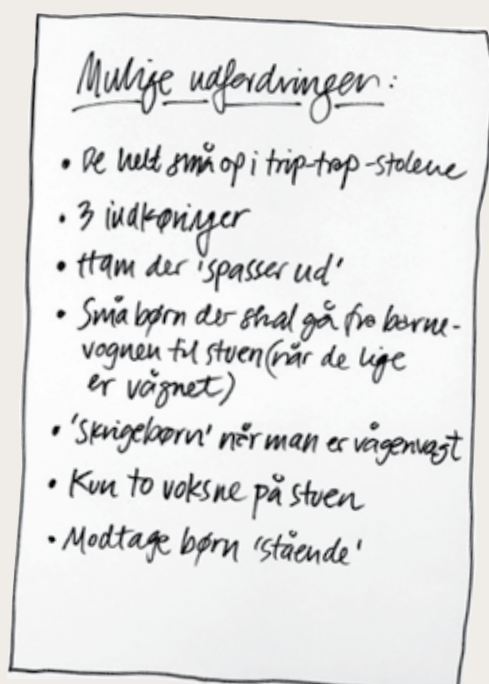 Mulige udfordringer:
• De helt små op i trip-trap-stolene
• 3 indkøringer
• Ham der 'spasser ud'
• Små børn der skal gå fra barne-
vognen til stuen (når de lige
er vågnet)
• 'Skrigebørn' når man er vågenvagt
• Kun to voksne på stuen
• Modtage børn 'stående'